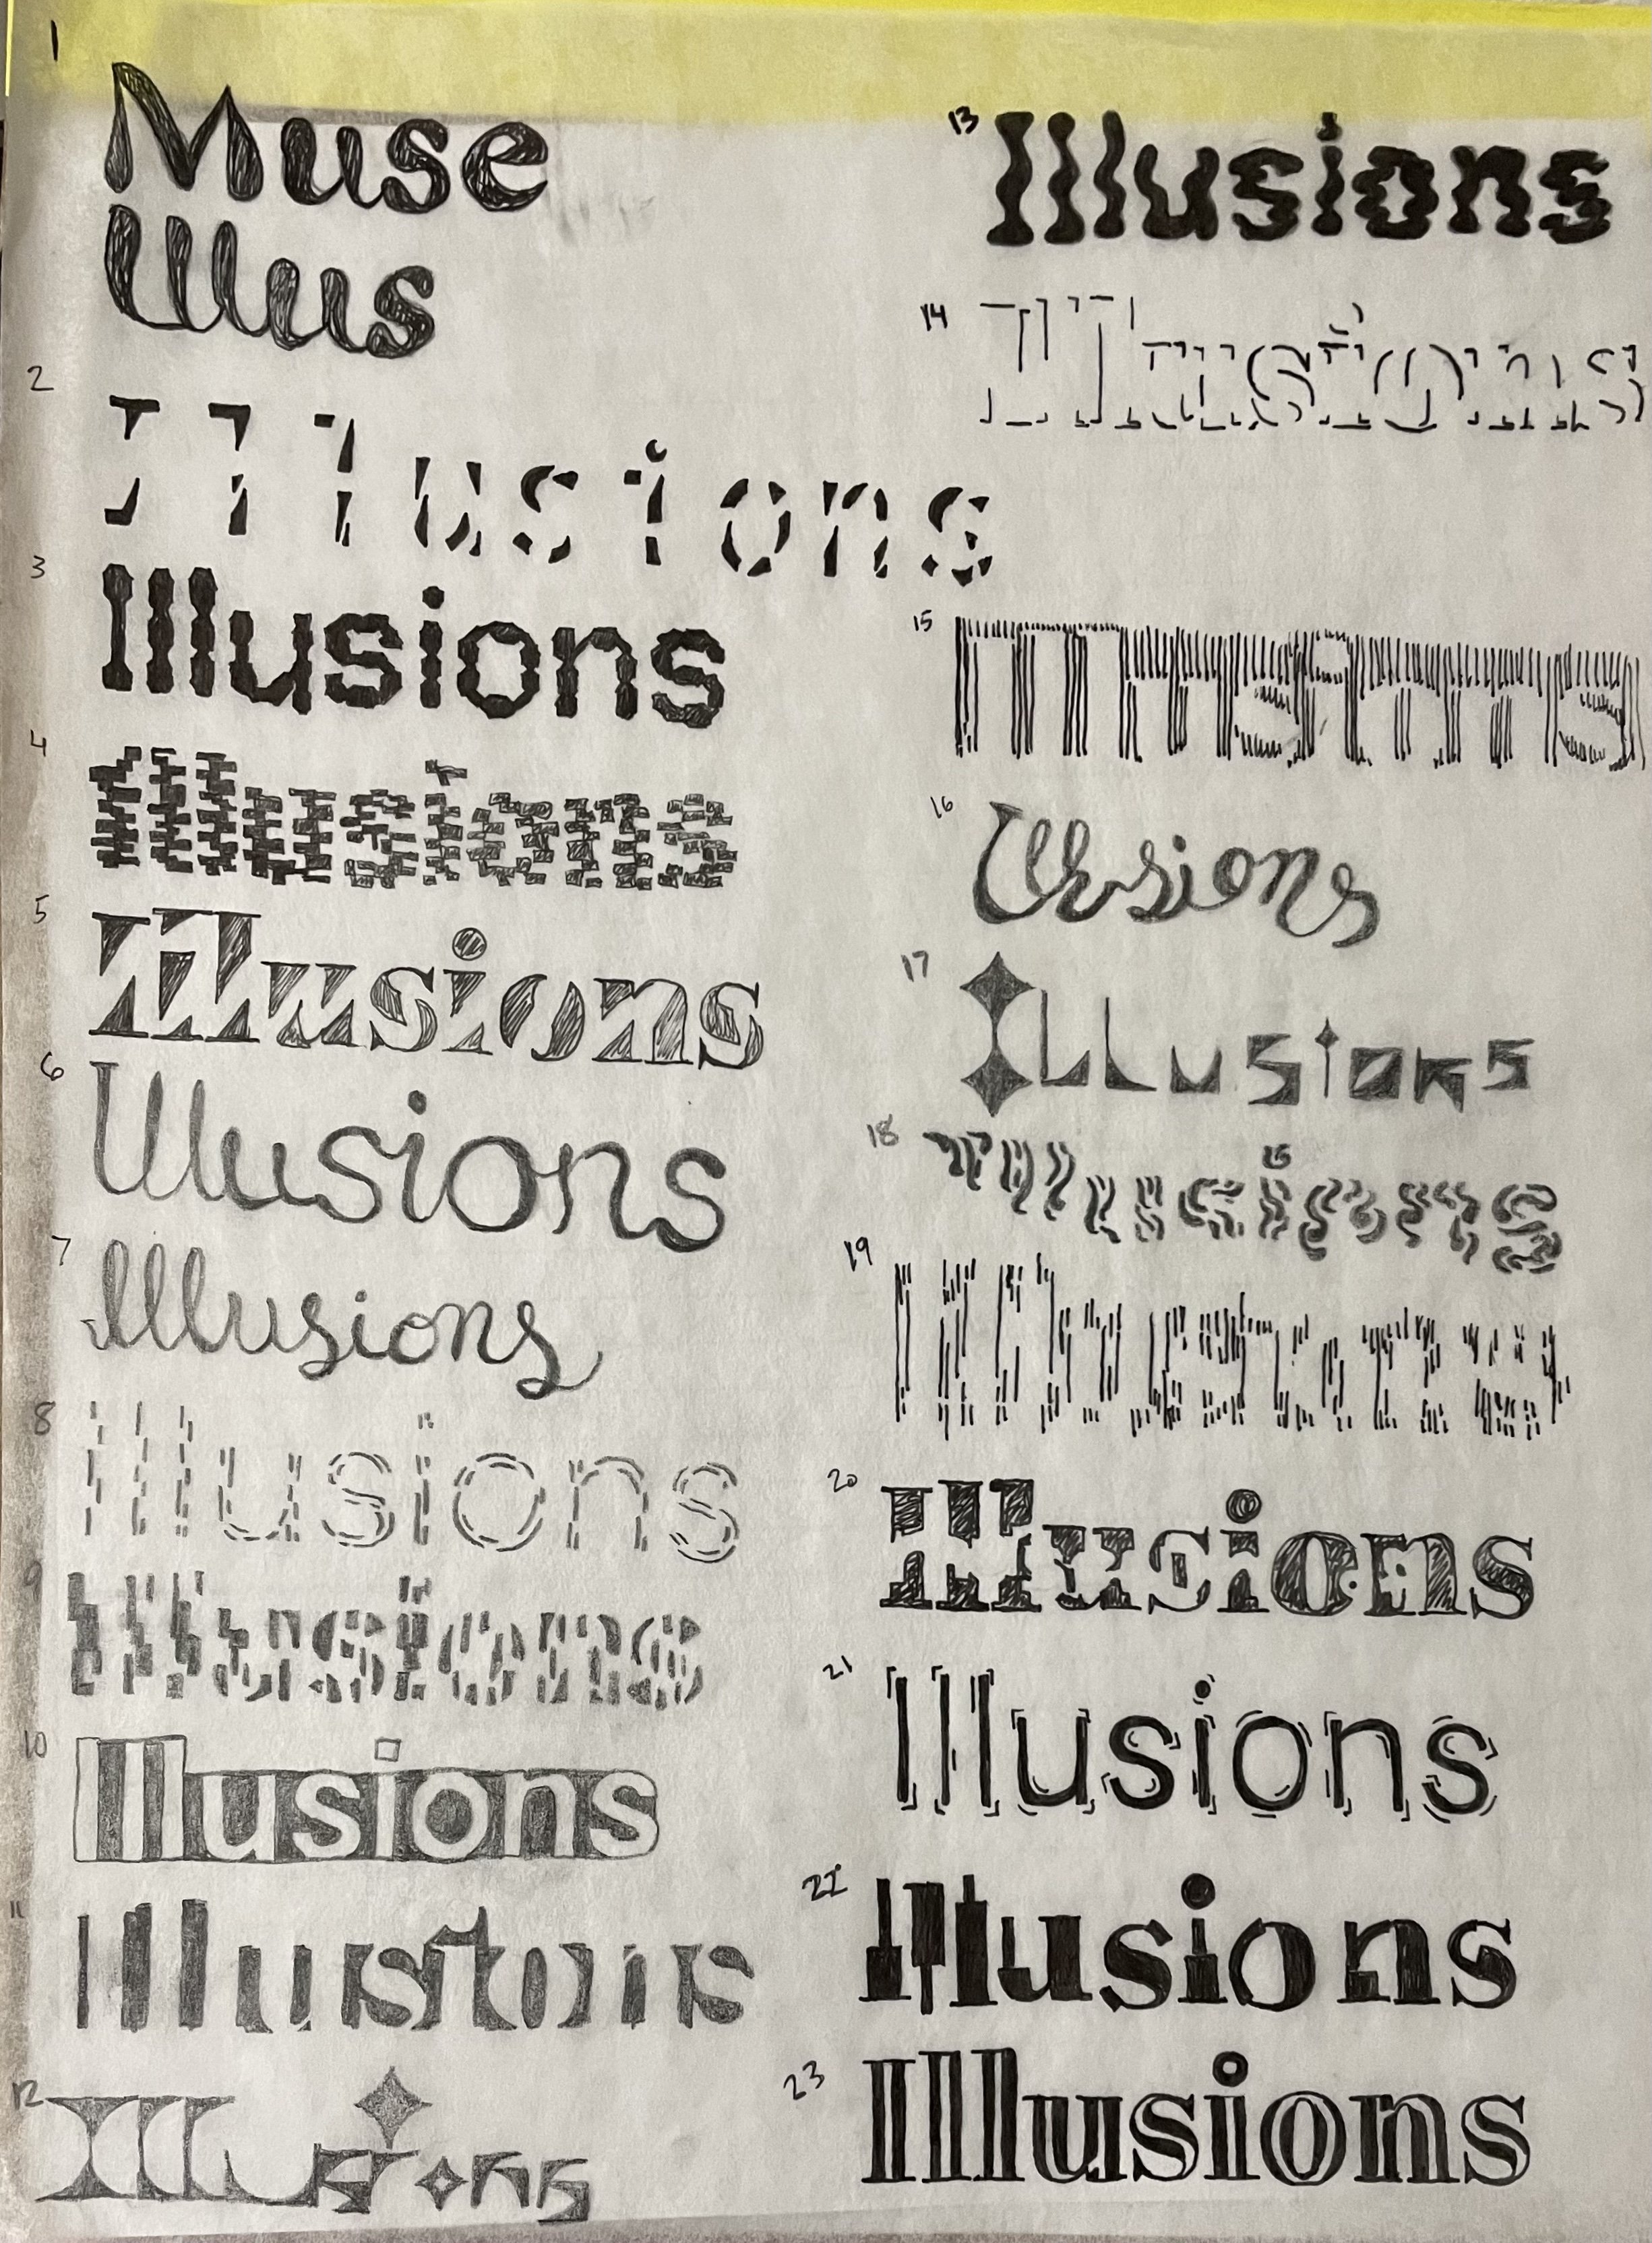 1
Muse
Illus
2
Illusions
3
Illusions
4
Illusions
5
Illusions
6
Illusions
7
Illusions
8
Illusions
9
Illusions
10
Illusions
11
Illusions
12
Illusions
13
Illusions
14
Illusions
15
Illusions
16
Illusions
17
Illusions
18
Illusions
19
Illusions
20
Illusions
21
Illusions
22
Illusions
23
Illusions